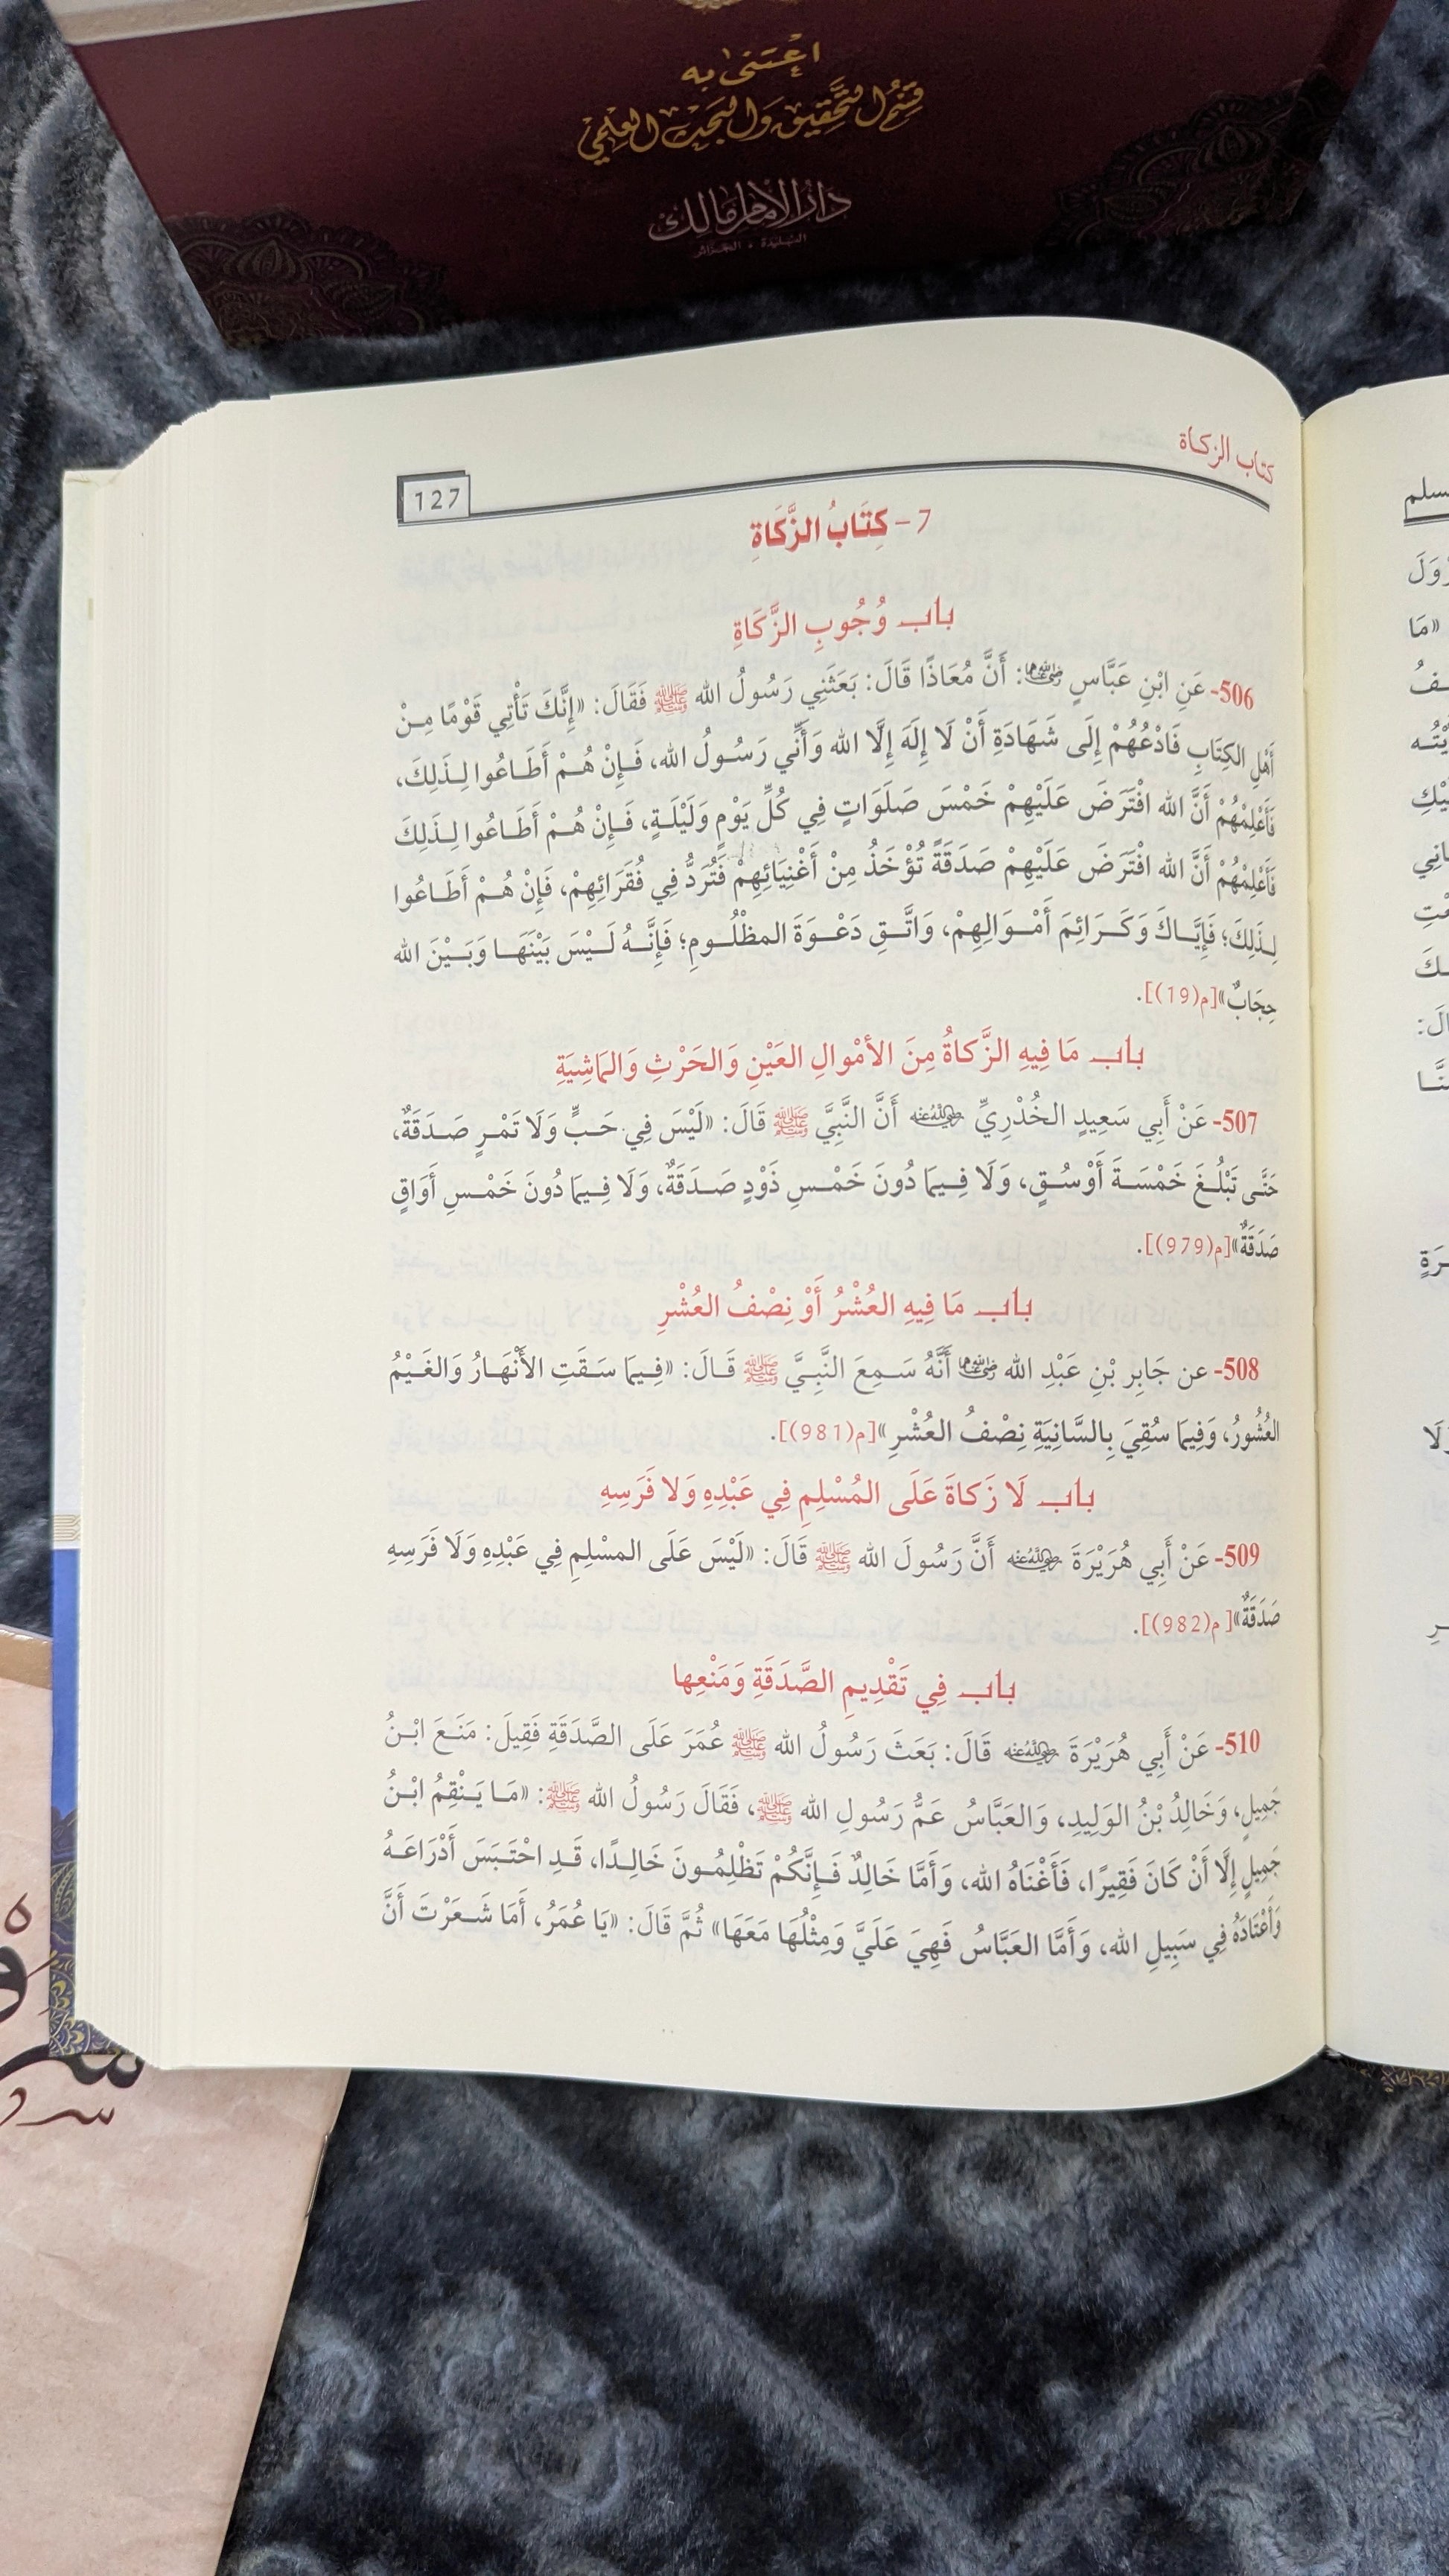 اعْتَنى به
قِسْمُ التَّحْقِيق وَالبَحْثِ العِلْمِي
دَارُ الإِمَام مَالِك
البليدة - الجزائر
كتاب الزكاة
127
7 - كِتَابُ الزَّكَاةِ
باب وُجُوبِ الزَّكَاةِ
506- عَنِ ابْنِ عَبَّاسٍ رضي الله عنهما: أَنَّ مُعَاذًا قَالَ: بَعَثَنِي رَسُولُ الله ﷺ فَقَالَ: «إِنَّكَ تَأْتِي قَوْمًا مِنْ
أَهْلِ الكِتَابِ فَادْعُهُمْ إِلَى شَهَادَةِ أَنْ لَا إِلَهَ إِلَّا الله وَأَنِّي رَسُولُ الله، فَإِنْ هُمْ أَطَاعُوا لِذَلِكَ،
فَأَعْلِمْهُمْ أَنَّ الله افْتَرَضَ عَلَيْهِمْ خَمْسَ صَلَوَاتٍ فِي كُلِّ يَوْمٍ وَلَيْلَةٍ، فَإِنْ هُمْ أَطَاعُوا لِذَلِكَ
فَأَعْلِمْهُمْ أَنَّ الله افْتَرَضَ عَلَيْهِمْ صَدَقَةً تُؤْخَذُ مِنْ أَغْنِيَائِهِمْ فَتُرَدُّ فِي فُقَرَائِهِمْ، فَإِنْ هُمْ أَطَاعُوا
لِذَلِكَ؛ فَإِيَّاكَ وَكَرَائِمَ أَمْوَالِهِمْ، وَاتَّقِ دَعْوَةَ المظْلُومِ؛ فَإِنَّهُ لَيْسَ بَيْنَهَا وَبَيْنَ الله
حِجَابٌ»[م(19)].
باب مَا فِيهِ الزَّكاةُ مِنَ الأمْوالِ العَيْنِ وَالحَرْثِ وَالمَاشِيَةِ
507- عَنْ أَبِي سَعِيدٍ الخُدْرِيِّ رضي الله عنه أَنَّ النَّبِيَّ ﷺ قَالَ: «لَيْسَ فِي حَبٍّ وَلَا تَمْرٍ صَدَقَةٌ،
حَتَّى تَبْلُغَ خَمْسَةَ أَوْسُقٍ، وَلَا فِيمَا دُونَ خَمْسِ ذَوْدٍ صَدَقَةٌ، وَلَا فِيمَا دُونَ خَمْسِ أَوَاقٍ
صَدَقَةٌ»[م(979)].
باب مَا فِيهِ العُشْرُ أَوْ نِصْفُ العُشْرِ
508- عن جَابِرِ بْنِ عَبْدِ الله رضي الله عنهما أَنَّهُ سَمِعَ النَّبِيَّ ﷺ قَالَ: «فِيمَا سَقَتِ الأَنْهَارُ وَالغَيْمُ
العُشُورُ، وَفِيمَا سُقِيَ بِالسَّانِيَةِ نِصْفُ العُشْرِ»[م(981)].
باب لَا زَكاةَ عَلَى المُسْلِمِ فِي عَبْدِهِ وَلا فَرَسِهِ
509- عَنْ أَبِي هُرَيْرَةَ رضي الله عنه أَنَّ رَسُولَ الله ﷺ قَالَ: «لَيْسَ عَلَى المسْلِمِ فِي عَبْدِهِ وَلَا فَرَسِهِ
صَدَقَةٌ»[م(982)].
باب فِي تَقْدِيمِ الصَّدَقَةِ وَمَنْعِها
510- عَنْ أَبِي هُرَيْرَةَ رضي الله عنه قَالَ: بَعَثَ رَسُولُ الله ﷺ عُمَرَ عَلَى الصَّدَقَةِ فَقِيلَ: مَنَعَ ابْنُ
جَمِيلٍ، وَخَالِدُ بْنُ الوَلِيدِ، وَالعَبَّاسُ عَمُّ رَسُولِ الله ﷺ، فَقَالَ رَسُولُ الله ﷺ: «مَا يَنْقِمُ ابْنُ
جَمِيلٍ إِلَّا أَنْ كَانَ فَقِيرًا، فَأَغْنَاهُ الله، وَأَمَّا خَالِدٌ فَإِنَّكُمْ تَظْلِمُونَ خَالِدًا، قَدِ احْتَبَسَ أَدْرَاعَهُ
وَأَعْتَادَهُ فِي سَبِيلِ الله، وَأَمَّا العَبَّاسُ فَهِيَ عَلَيَّ وَمِثْلُهَا مَعَهَا» ثُمَّ قَالَ: «يَا عُمَرُ، أَمَا شَعَرْتَ أَنَّ